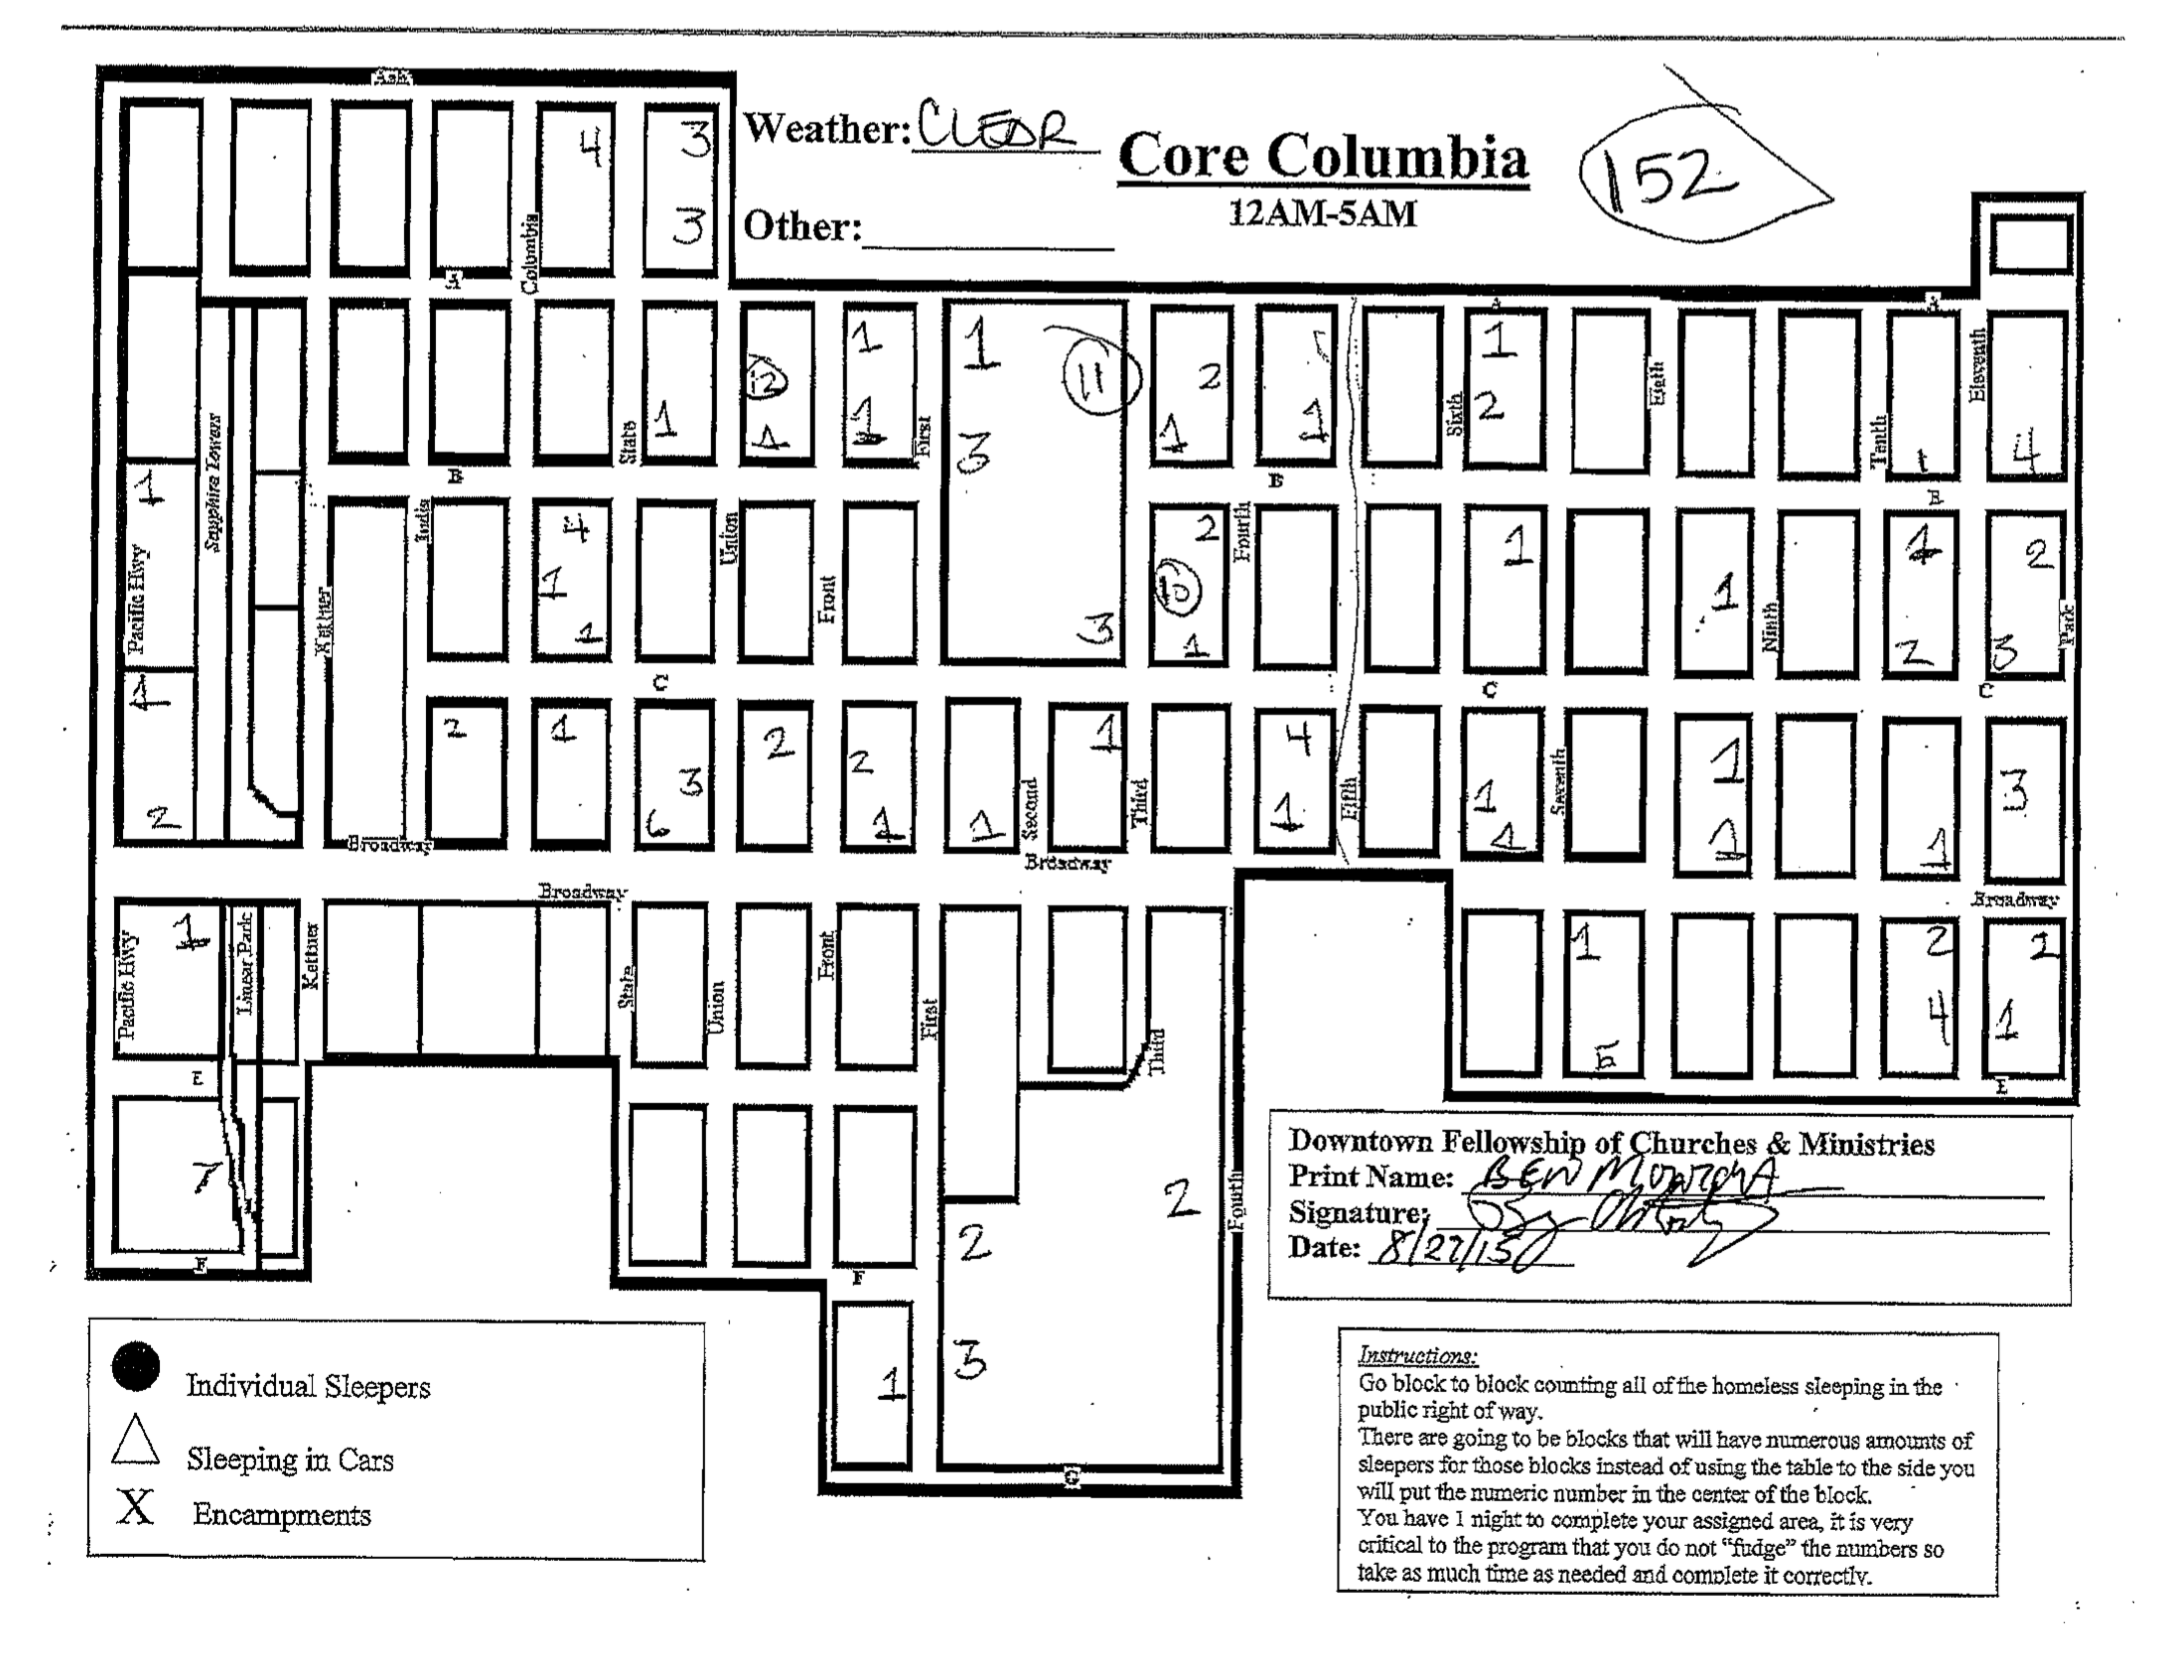 Ash
Weather: CLEAR
Core Columbia
152
12AM-5AM
Other:
4
3
3
Columbia
A
A
A
1
12
1
1
1
1
3
11
3
2
1
1
1
2
1
4
Sapphire Towers
State
First
Sixth
Eigth
Tenth
Eleventh
B
B
B
1
Pacific Hwy
1
2
Kettner
India
4
1
1
Union
Front
2
10
1
Fourth
1
1
Ninth
1
2
2
3
Park
C
C
C
2
1
3
6
2
2
1
1
Second
1
Third
4
1
Fifth
1
1
Seventh
1
1
1
3
Broadway
Broadway
Broadway
Broadway
Pacific Hwy
1
Linear Park
Kettner
State
Union
Front
First
Third
1
5
2
4
2
1
E
E
7
F
F
2
2
3
Fourth
1
G
Downtown Fellowship of Churches & Ministries
Print Name: BEN
Signature:
Date: 8/27/15
Individual Sleepers
Sleeping in Cars
X Encampments
Instructions:
Go block to block counting all of the homeless sleeping in the
public right of way.
There are going to be blocks that will have numerous amounts of
sleepers for those blocks instead of using the table to the side you
will put the numeric number in the center of the block.
You have 1 night to complete your assigned area, it is very
critical to the program that you do not "fudge" the numbers so
take as much time as needed and complete it correctly.